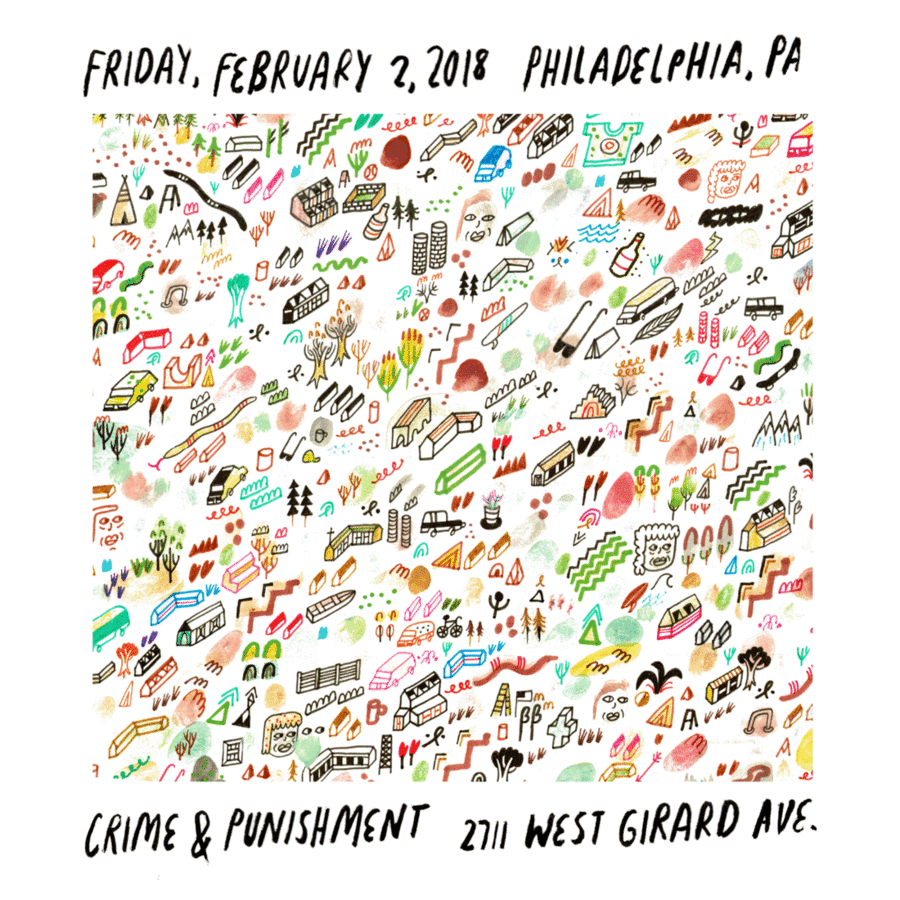 FRIDAY, FEBRUARY 2, 2018 PHILADELPHIA, PA
CRIME & PUNISHMENT 2711 WEST GIRARD AVE.